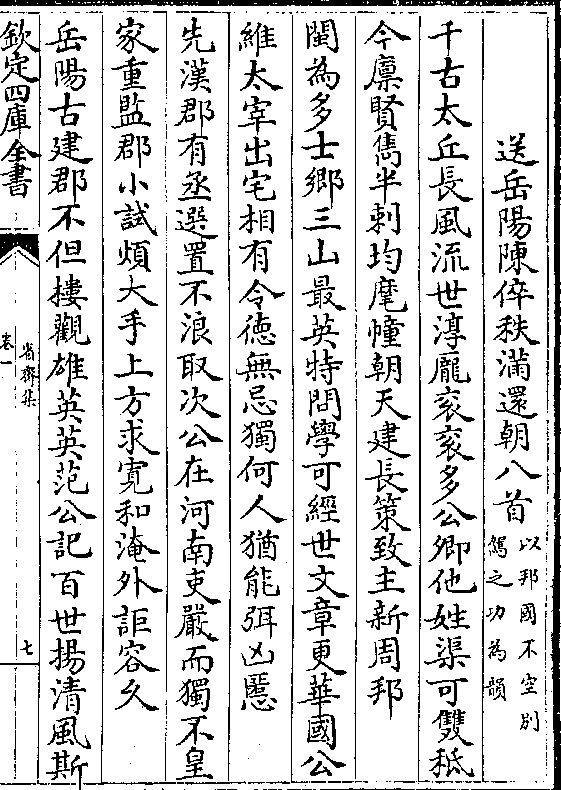 送岳陽陳倅秩滿還朝八首以邦國不空別
駕之功為韻
千古太丘長風流世淳龎衮衮多公卿他姓渠可雙秪
今廪賢雋半刺均麾幢朝天建長策致主新周邦
閩為多士鄉三山最英特問學可經世文章更華國公
維太宰出宅相有令徳無忌獨何人猶能弭凶慝
先漢郡有丞選置不浪取次公在河南吏嚴而獨不皇
家重監郡小試煩大手上方求寛和淹外詎容久
岳陽古建郡不但樓觀雄英英范公記百世揚清風斯
欽定四庫全書
省齋集
卷一
七